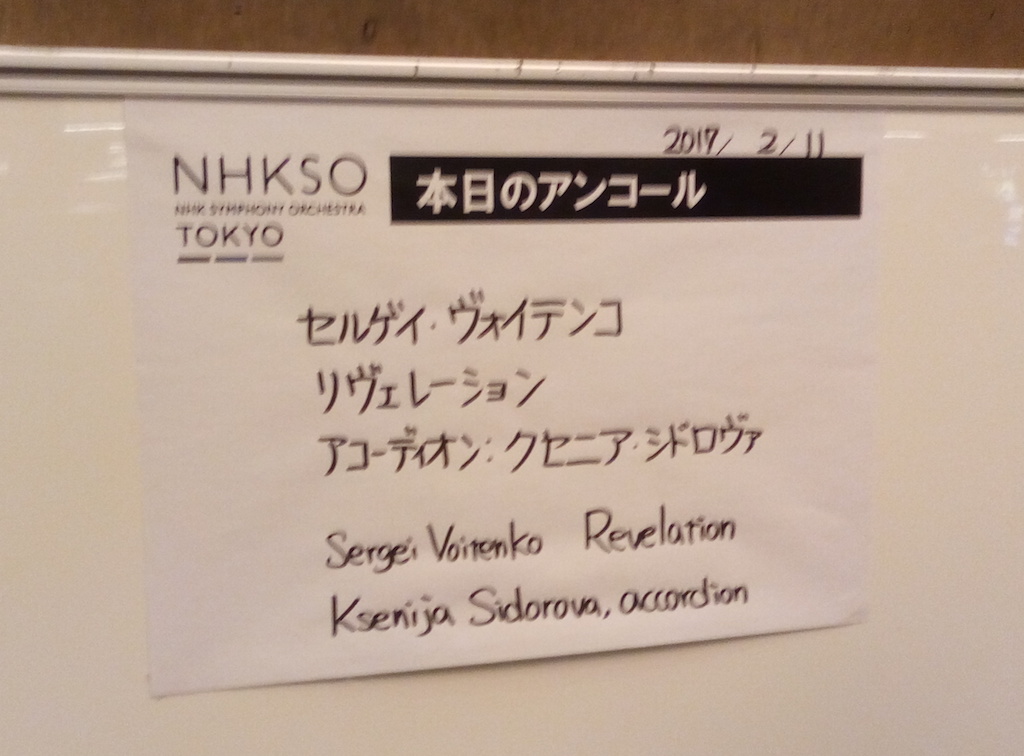 2017/ 2/11
NHKSO
NHK SYMPHONY ORCHESTRA
TOKYO
本日のアンコール
セルゲイ・ヴォイテンコ
リヴェレーション
アコーディオン:クセニア・シドロヴァ
Sergei Voitenko Revelation
Ksenija Sidorova, accordion